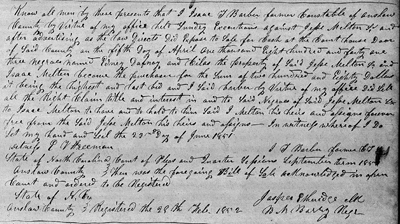 Know all men by these presents that I Isaac T Barber former Constable of Onslow
County by virtue of my office with Sundry Executions against Jesse Melton Sr and
after advertising as the Law Directs Did Expose to Sale for Cash at the Court house door
of Said County on the fifth Day of April One thousand Eight hundred and forty one
three negroes named Piney Dafney and Silas the property of Said Jesse Melton Sr and
Isaac Melton became the purchaser for the Sum of two hundred and Eighty Dollars
it being the highest and last bid and I Said Barber by Virtue of my office Did Sell
all the Right Claim title and interest in and to Said Negroes of Said Jesse Melton Sr
to Isaac Melton to have and to hold to him Said I Melton his heirs and assigns forever
free from the Said Jesse Melton his heirs and assigns In witness whereof I Do
Set my hand and Seal the 22nd Day of June 1851
P V Freeman I T Barber former
State of North Carolina Court of Pleas and Quarter Sessions September term 1851
Onslow County Then was the foregoing Bill of Sale acknowledged in open
Court and ordered to be Registered
Jasper Etheridge clk
State of N. Ca
Onslow County Registered the 28th Feb. 1852 Regr